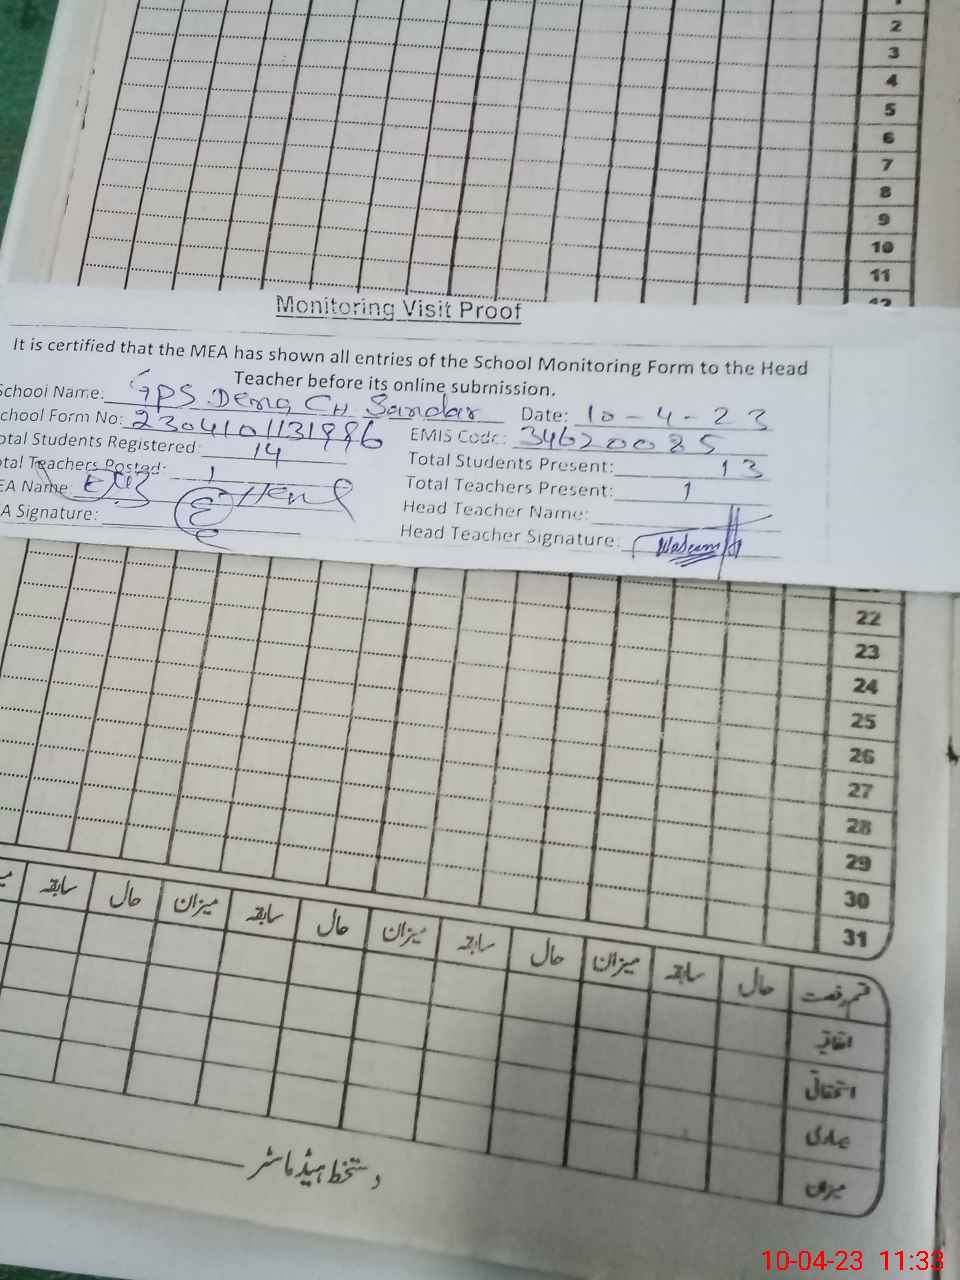 2
3
4
5
6
7
8
9
10
11
Monitoring Visit Proof
It is certified that the MEA has shown all entries of the School Monitoring Form to the Head
Teacher before its online submission.
School Name: GPS Dera CH Sandar Date: 10-4-23
School Form No: 2304101131996 EMIS Code: 34620085
Total Students Registered: 14 Total Students Present: 13
Total Teachers Posted: 1 Total Teachers Present: 1
EA Name: Head Teacher Name:
A Signature: Head Teacher Signature: Waseem
22
23
24
25
26
27
28
29
30
31
قسم رخصت حال سابقہ میزان حال سابقہ میزان حال سابقہ میزان حال سابقہ
اتفاقیہ
استحقاقی
بیماری
میزان
دستخط ہیڈ ماسٹر
10-04-23 11:33